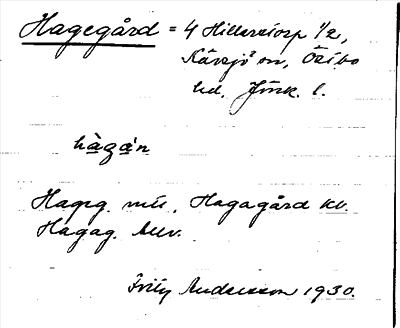 Hagegård = 4 Hillerstorp 1/2,
Kävsjö sn, Östbo
hd, Jönk. l.
hàgan
Hageg. mís. Hagagård kv.
Hagag. Auv.
Fritz Andersson 1930.